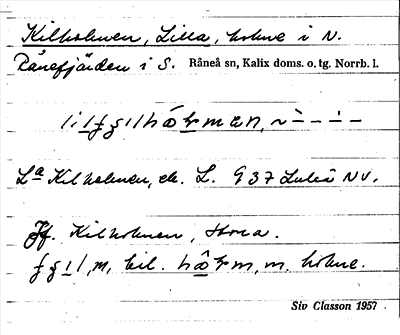 Kilholmen, Lilla, holme i N.
Rånefjärden i S. Råneå sn, Kalix doms. o. tg. Norrb. l.
La Kilholmen, ek. L. 937 Luleå NV.
Jf. Kilholmen, Stora.
m, bil. m. holme.
Siv Classon 1957